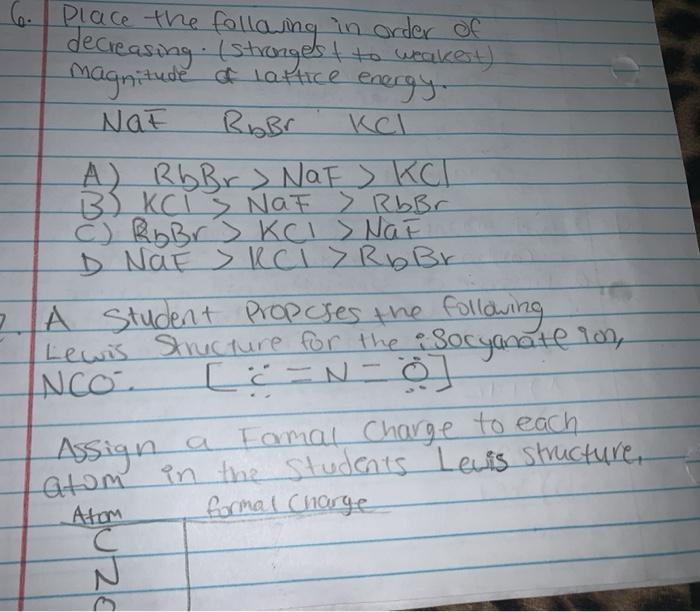 6. Place the following in order of
decreasing. (strongest to weakest)
magnitude of lattice energy.
NaF RbBr KCl
A) RbBr > NaF > KCl
B) KCl > NaF > RbBr
C) RbBr > KCl > NaF
D NaF > KCl > RbBr
A Student Proposes the following
Lewis Structure for the isocyanate ion,
NCO⁻. [:C̈=N=Ö:]
Assign a Formal Charge to each
atom in the Students Lewis structure.
Atom formal Charge
C
N
O